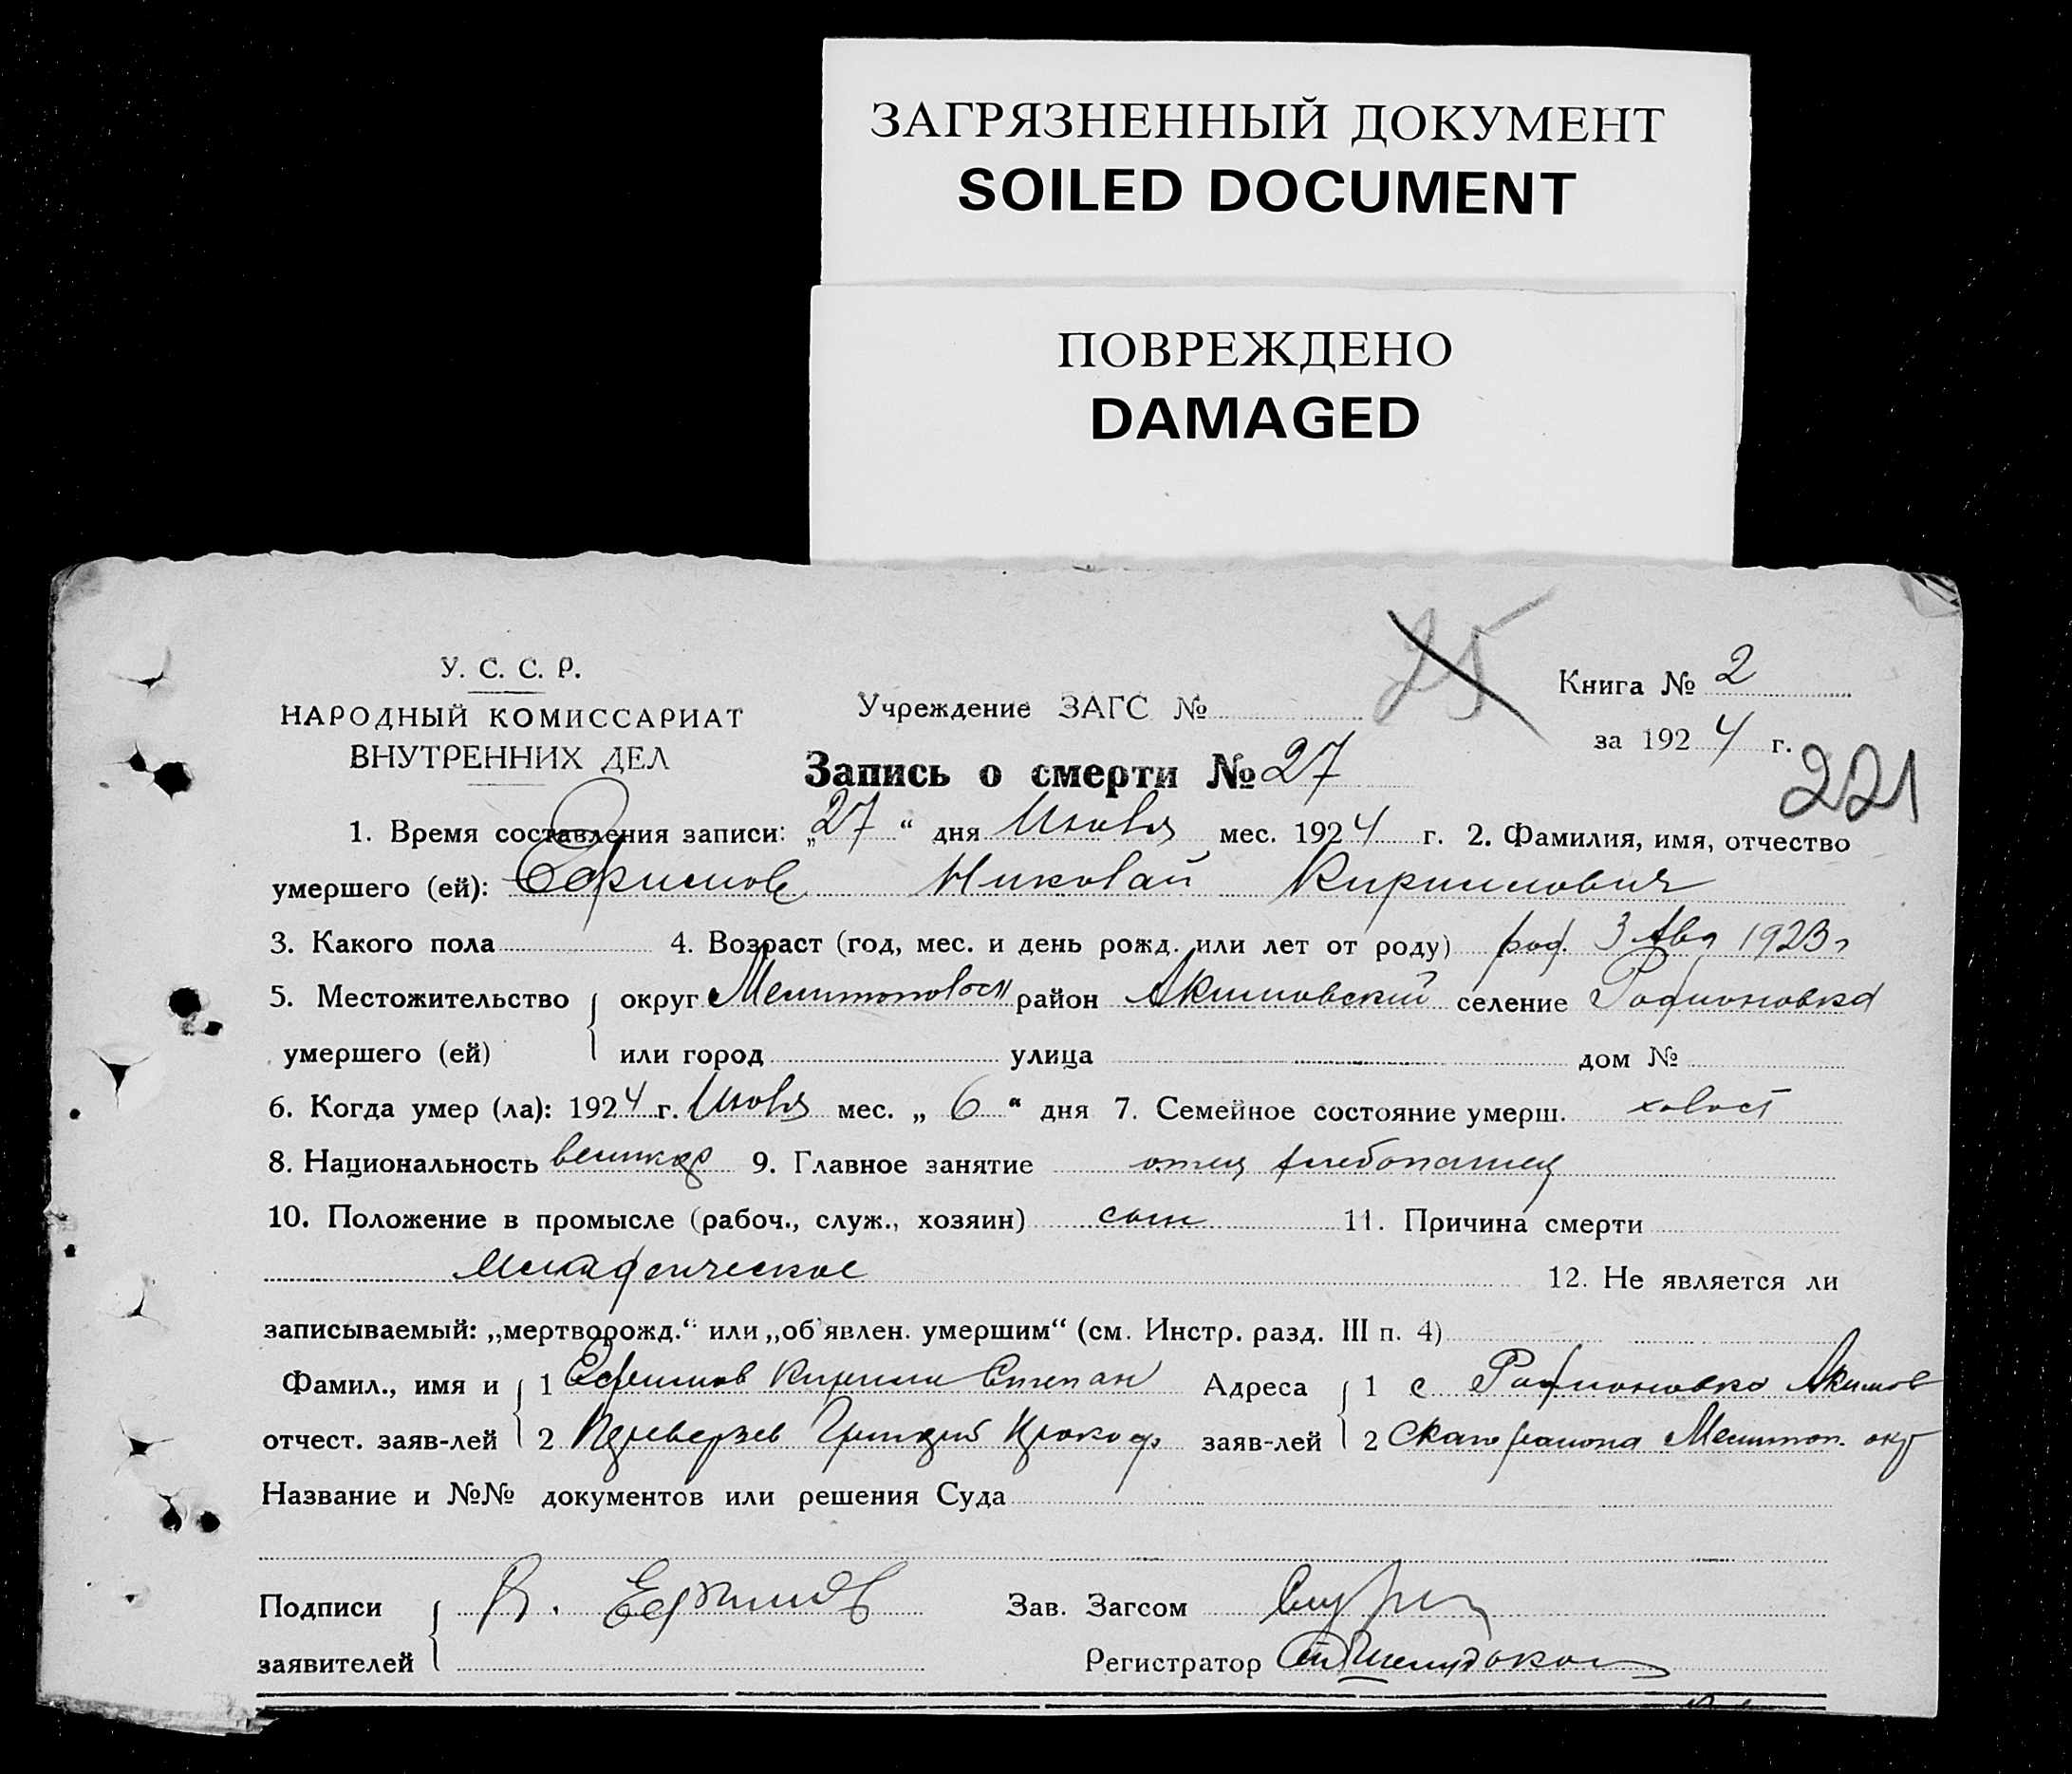 ЗАГРЯЗНЕННЫЙ ДОКУМЕНТ
SOILED DOCUMENT
ПОВРЕЖДЕНО
DAMAGED
25
У. С. С. Р.
НАРОДНЫЙ КОМИССАРИАТ
ВНУТРЕННИХ ДЕЛ
Учреждение ЗАГС №
Книга № 2
за 1924 г.
221
Запись о смерти № 27
1. Время составления записи: „27“ дня Июля мес. 1924 г. 2. Фамилия, имя, отчество
умершего (ей): Ефимов Николай Кирилович
3. Какого пола 4. Возраст (год, мес. и день рожд. или лет от роду) род. 3 Авг 1923 г
5. Местожительство округ район Акимовский селение Родионовка
умершего (ей) или город улица дом №
6. Когда умер (ла): 1924 г. Июля мес. „6“ дня 7. Семейное состояние умерш. холост
8. Национальность великор 9. Главное занятие отец хлебопашец
10. Положение в промысле (рабоч., служ., хозяин) сын 11. Причина смерти
12. Не является ли
записываемый: „мертворожд.“ или „об'явлен. умершим“ (см. Инстр. разд. III п. 4)
Фамил., имя и 1 Ефимов Кирилл Степан Адреса 1 с Родионовка Акимов
отчест. заяв-лей 2 заяв-лей 2 ского района Мелитоп. окр
Название и №№ документов или решения Суда
Подписи К. Ефимов Зав. Загсом
заявителей Регистратор